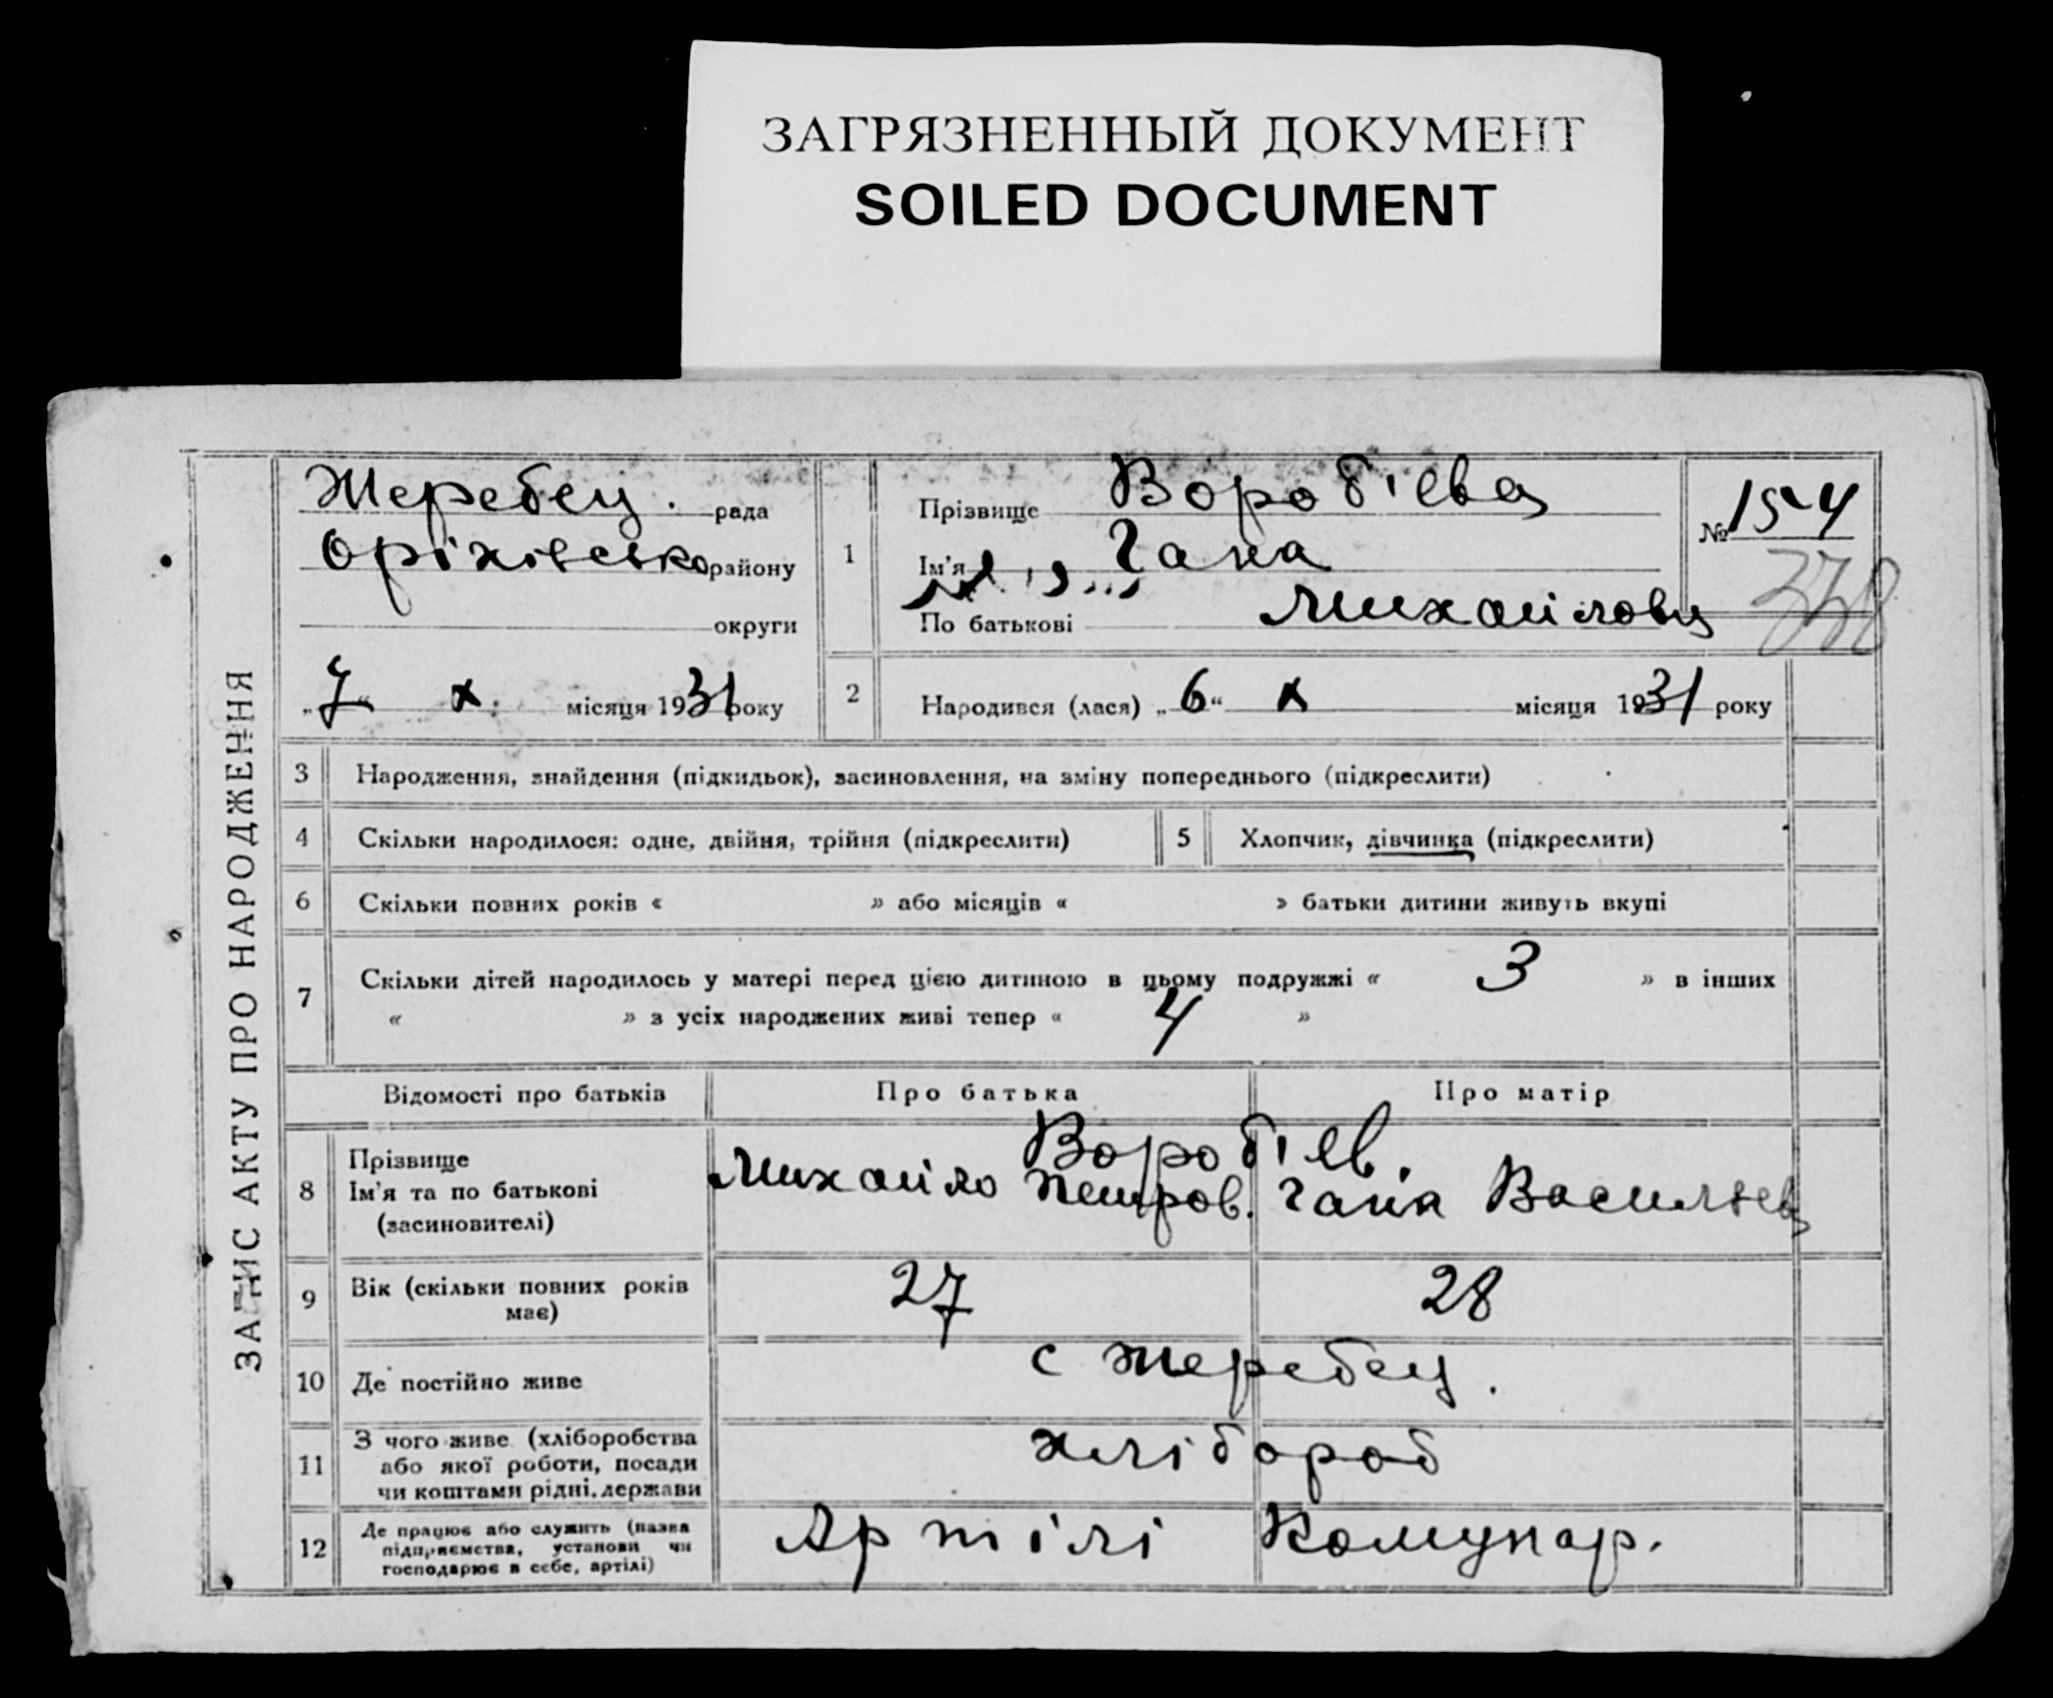 ЗАГРЯЗНЕННЫЙ ДОКУМЕНТ
SOILED DOCUMENT
ЗАПИС АКТУ ПРО НАРОДЖЕННЯ
Жеребец. рада
Оріхівсько району
округи
„7“ X. місяця 1931 року
1
Прізвище Вороб'ієва
Ім'я Гана
По батькові Михайловн
№ 154
378
2 Народився (лася) „6“ X місяця 1931 року
3 Народження, знайдення (підкидьок), засиновлення, на зміну попереднього (підкреслити)
4 Скільки народилося: одне, двійня, трійня (підкреслити)
5 Хлопчик, дівчинка (підкреслити)
6 Скільки повних років « » або місяців « » батьки дитини живуть вкупі
7 Скільки дітей народилось у матері перед цією дитиною в цьому подружжі « 3 » в інших
« » з усіх народжених живі тепер « 4 »
Відомості про батьків Про батька Про матір
8 Прізвище
Ім'я та по батькові
(засиновителі)
Вороб'ієв.
Михайло Петров. Ганна Васильев
9 Вік (скільки повних років
має)
27 28
10 Де постійно живе с Жеребец.
11 З чого живе (хліборобства
або якої роботи, посади
чи коштами рідні, держави
хлібороб
12 Де працює або служить (назва
підприємства, установи чи
господарює в себе, артілі)
Артілі Комунар.